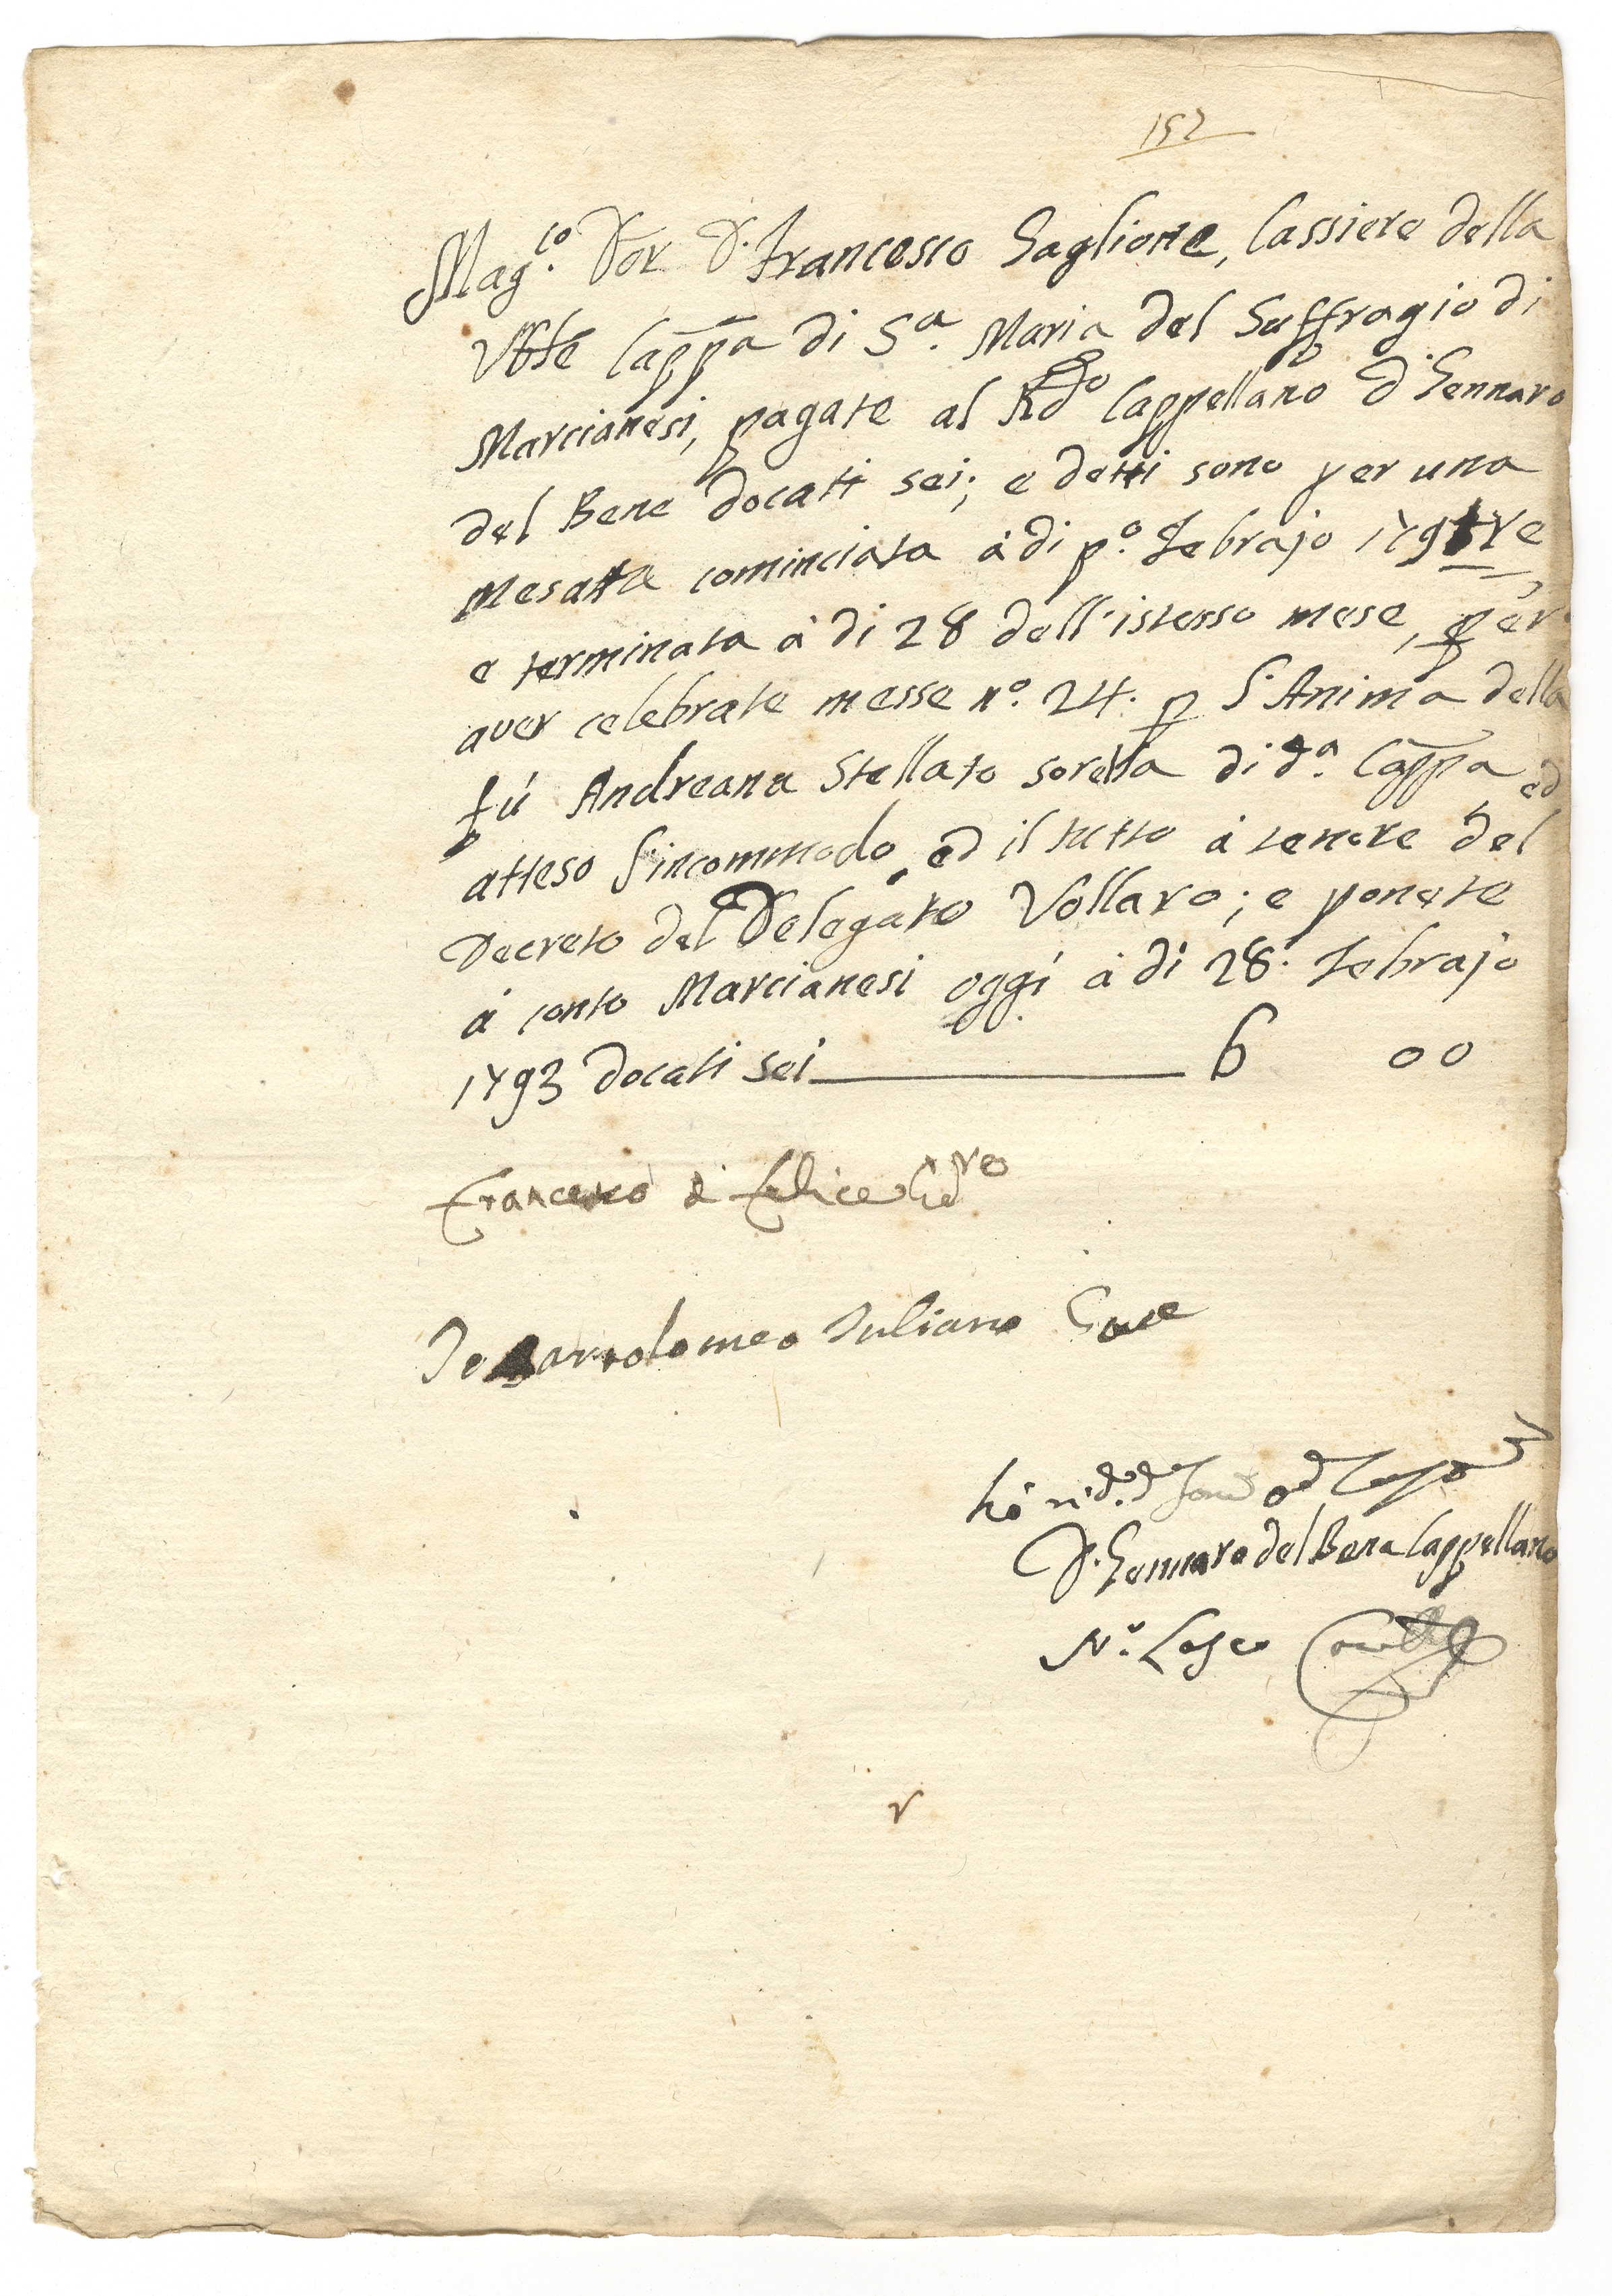 152
Mag.co Dor D. Francesco Gaglione, Cassiere della
Vble Cappa di S.a Maria del Suffragio di
Marcianesi, pagate al Rdo Cappellano D Gennaro
del Bene docati sei; e detti sono per una
Mesatta cominciata à di p.o Febrajo
e terminata à di 28 dell'istesso mese, per
aver celebrate messe n.o 24. p l'Anima della
fù Andreana Stellato sorella di d.a Cappa ed
atteso l'incommodo, ed il tutto à tenore del
Decreto del Delegato Vollaro; e ponete
à conto Marcianesi oggi à di 28. Febrajo
1793 docati sei 6 00
Francesco di Felice
Io Bartolomeo Iuliano
hò
D. Gennaro del Bene Cappellano